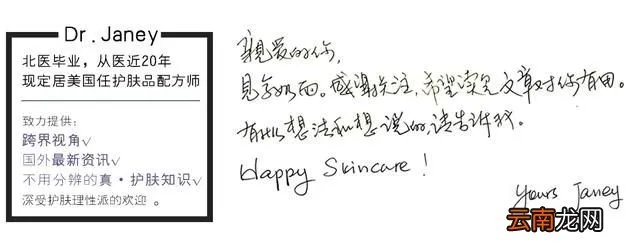 Dr. Janey
北医毕业，从医近20年
现定居美国任护肤品配方师
致力提供：
跨界视角√
国外最新资讯√
不用分辨的真·护肤知识√
深受护肤理性派的欢迎 。
親爱的你，
见字如面。感谢关注，希望读完文章对你有用。
有什么想法和想说的，请告诉我。
Happy Skincare！
Yours Janey
云南龙网